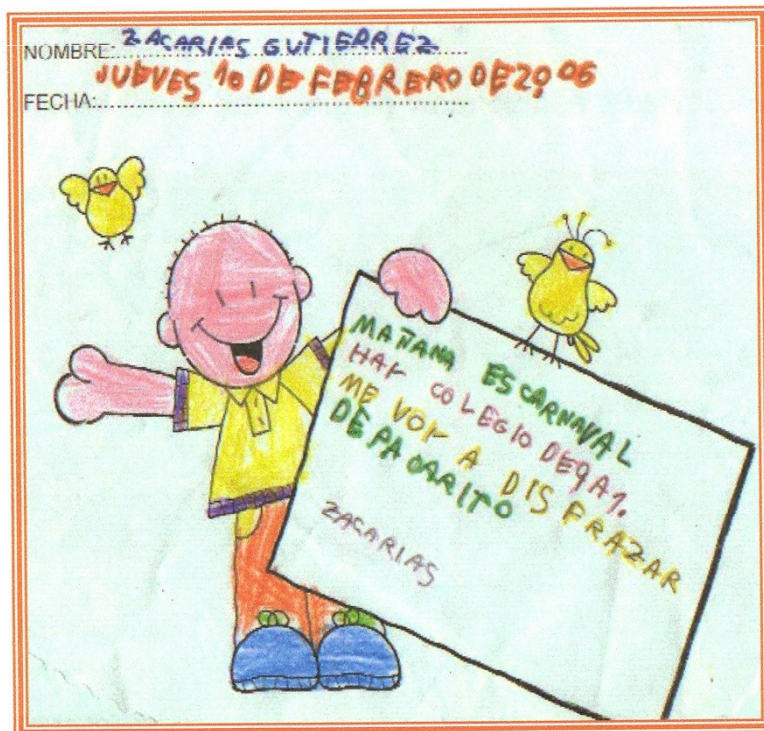 NOMBRE: ZACARIAS GUTIERREZ
JUEVES 10 DE FEBRERO DE 2006
FECHA:
MAÑANA ES CARNAVAL
HAY COLEGIO DE 9 A 1.
ME VOY A DISFRAZAR
DE PAJARITO
ZACARIAS